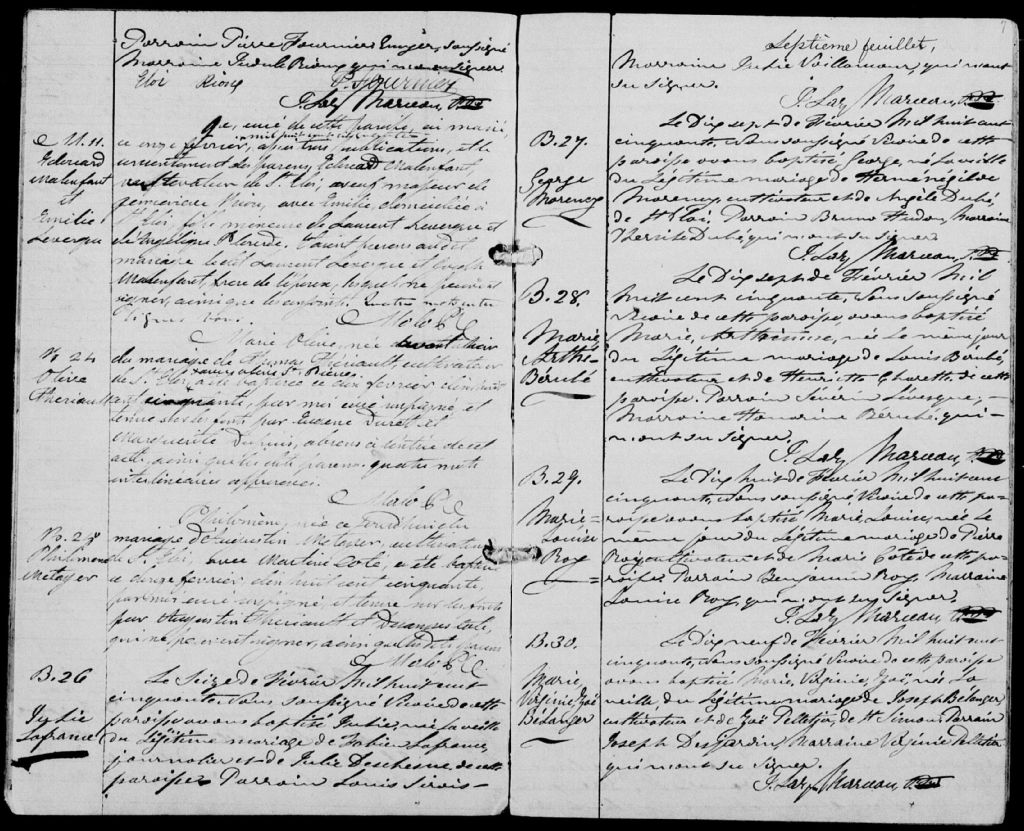 Parrain Pierre Fournier Ecuyer, soussigné
Marraine Gudule Rioux qui n'a su signer
Eloi Rioux P. Fournier
J. Laz. Marceau, Ptre
M. 11.
Edouard
Malenfant
et
Emilie
Levesque
curé de cette paroisse, ai marié,
ce onze février, mil huit cent cinquante après trois publications, et le
consentement des parens, Edouard Malenfant,
cultivateur de St. Eloi, veuf majeur de
avec Emilie, domiciliée à
St Eloi fille mineure de Laurent Levesque et
de Angélique Plourde. Furent présens au dit
mariage le dit Laurent Levesque et Joseph
Malenfant, frère de l'époux, lesquels ne peuvent
signer, ainsi que les conjoints. Quatre mots inter
lignes bons.
Malo Ptre
B. 24
Olive
Thériault
Marie Olive, née
du mariage de Thomas Thériault, cultivateur
de St. Eloi, a été baptisée ce onze février dix huit
cent cinquante, par moi curé soussigné, et
tenue sur les fonts par Eugène Durette et
Marguerite Dupuis, absens à l'entrée de cet
acte ainsi que les dits parens. quatre mots
interlinéaires approuvés.
Malo Ptre
B. 25
Philomène
Metayer
Philomène, née ce jourd'hui du
mariage d'Augustin Metayer, cultivateur
de St. Eloi, avec Martine Coté, a été baptisée
ce douze février, dix huit cent cinquante,
par moi curé soussigné, et tenue sur les fonts
par Augustin Thériault et Coté,
qui ne peuvent signer, ainsi que les dits parens
Malo Ptre
B. 26
Julie
Lafrance
Le Seize de Février Mil huit cent
cinquante, Nous Soussigné Vicaire de cette
paroisse avons baptisé Julie, née la veille
du Légitime mariage de Fabien Lafrance,
journalier et de Julie Deschesne, de cette
paroisse. Parrain Louis Sirois-
7
Septième feuillet,
Marraine Julie Vaillancour, qui n'ont
su Signer.
J. Laz. Marceau, Ptre
B. 27.
George
Morency
Le Dix sept de Février Mil huit cent
cinquante, Nous Soussigné Vicaire de cette
paroisse avons baptisé George, né la veille
du Légitime mariage de Herménégilde
Morency, cultivateur et de Angèle Dubé,
de St Eloi, Parrain Bruno Hudon, Marraine
Thersite Dubé qui n'ont su signer
J. Laz. Marceau, Ptre
B. 28.
Marie
Arthé-
Bérubé
Le Dix sept de Février Mil
huit cent cinquante, Nous Soussigné
Vicaire de cette paroisse, avons baptisé
Marie, née le même jour
du Légitime mariage de Louis Bérubé,
cultivateur et de Henriette Charette de cette
paroisse. Parrain Séverin Levesque, -
Marraine Honorine Bérubé. qui -
n'ont su Signer.
J. Laz. Marceau, Ptre
B. 29.
Marie=
Louise
Roy
Le Dix huit de Février Mil huit cent
cinquante, Nous Soussigné Vicaire de cette pa-
roisse avons baptisé Marie, Louise, née le
même jour du Légitime mariage de Pierre
Roy cultivateur et de Marie Coté de cette pa-
roisse. Parrain Benjamin Roy, Marraine
Louise Roy, qui n'ont su Signer.
J. Laz. Marceau, Ptre
B. 30.
Marie
Virginie Zoë
Bélanger
Le Dix neuf de Février Mil huit cent
cinquante, Nous Soussigné Vicaire de cette paroisse
avons baptisé Marie, Virginie, Zoë, née La
veille du Légitime mariage de Joseph Bélanger,
cultivateur et de Zoë Pelletier, de St Simon. Parrain
Joseph Desjardin, Marraine Virginie Pelletier
qui n'ont su Signer.
J. Laz. Marceau, Ptre